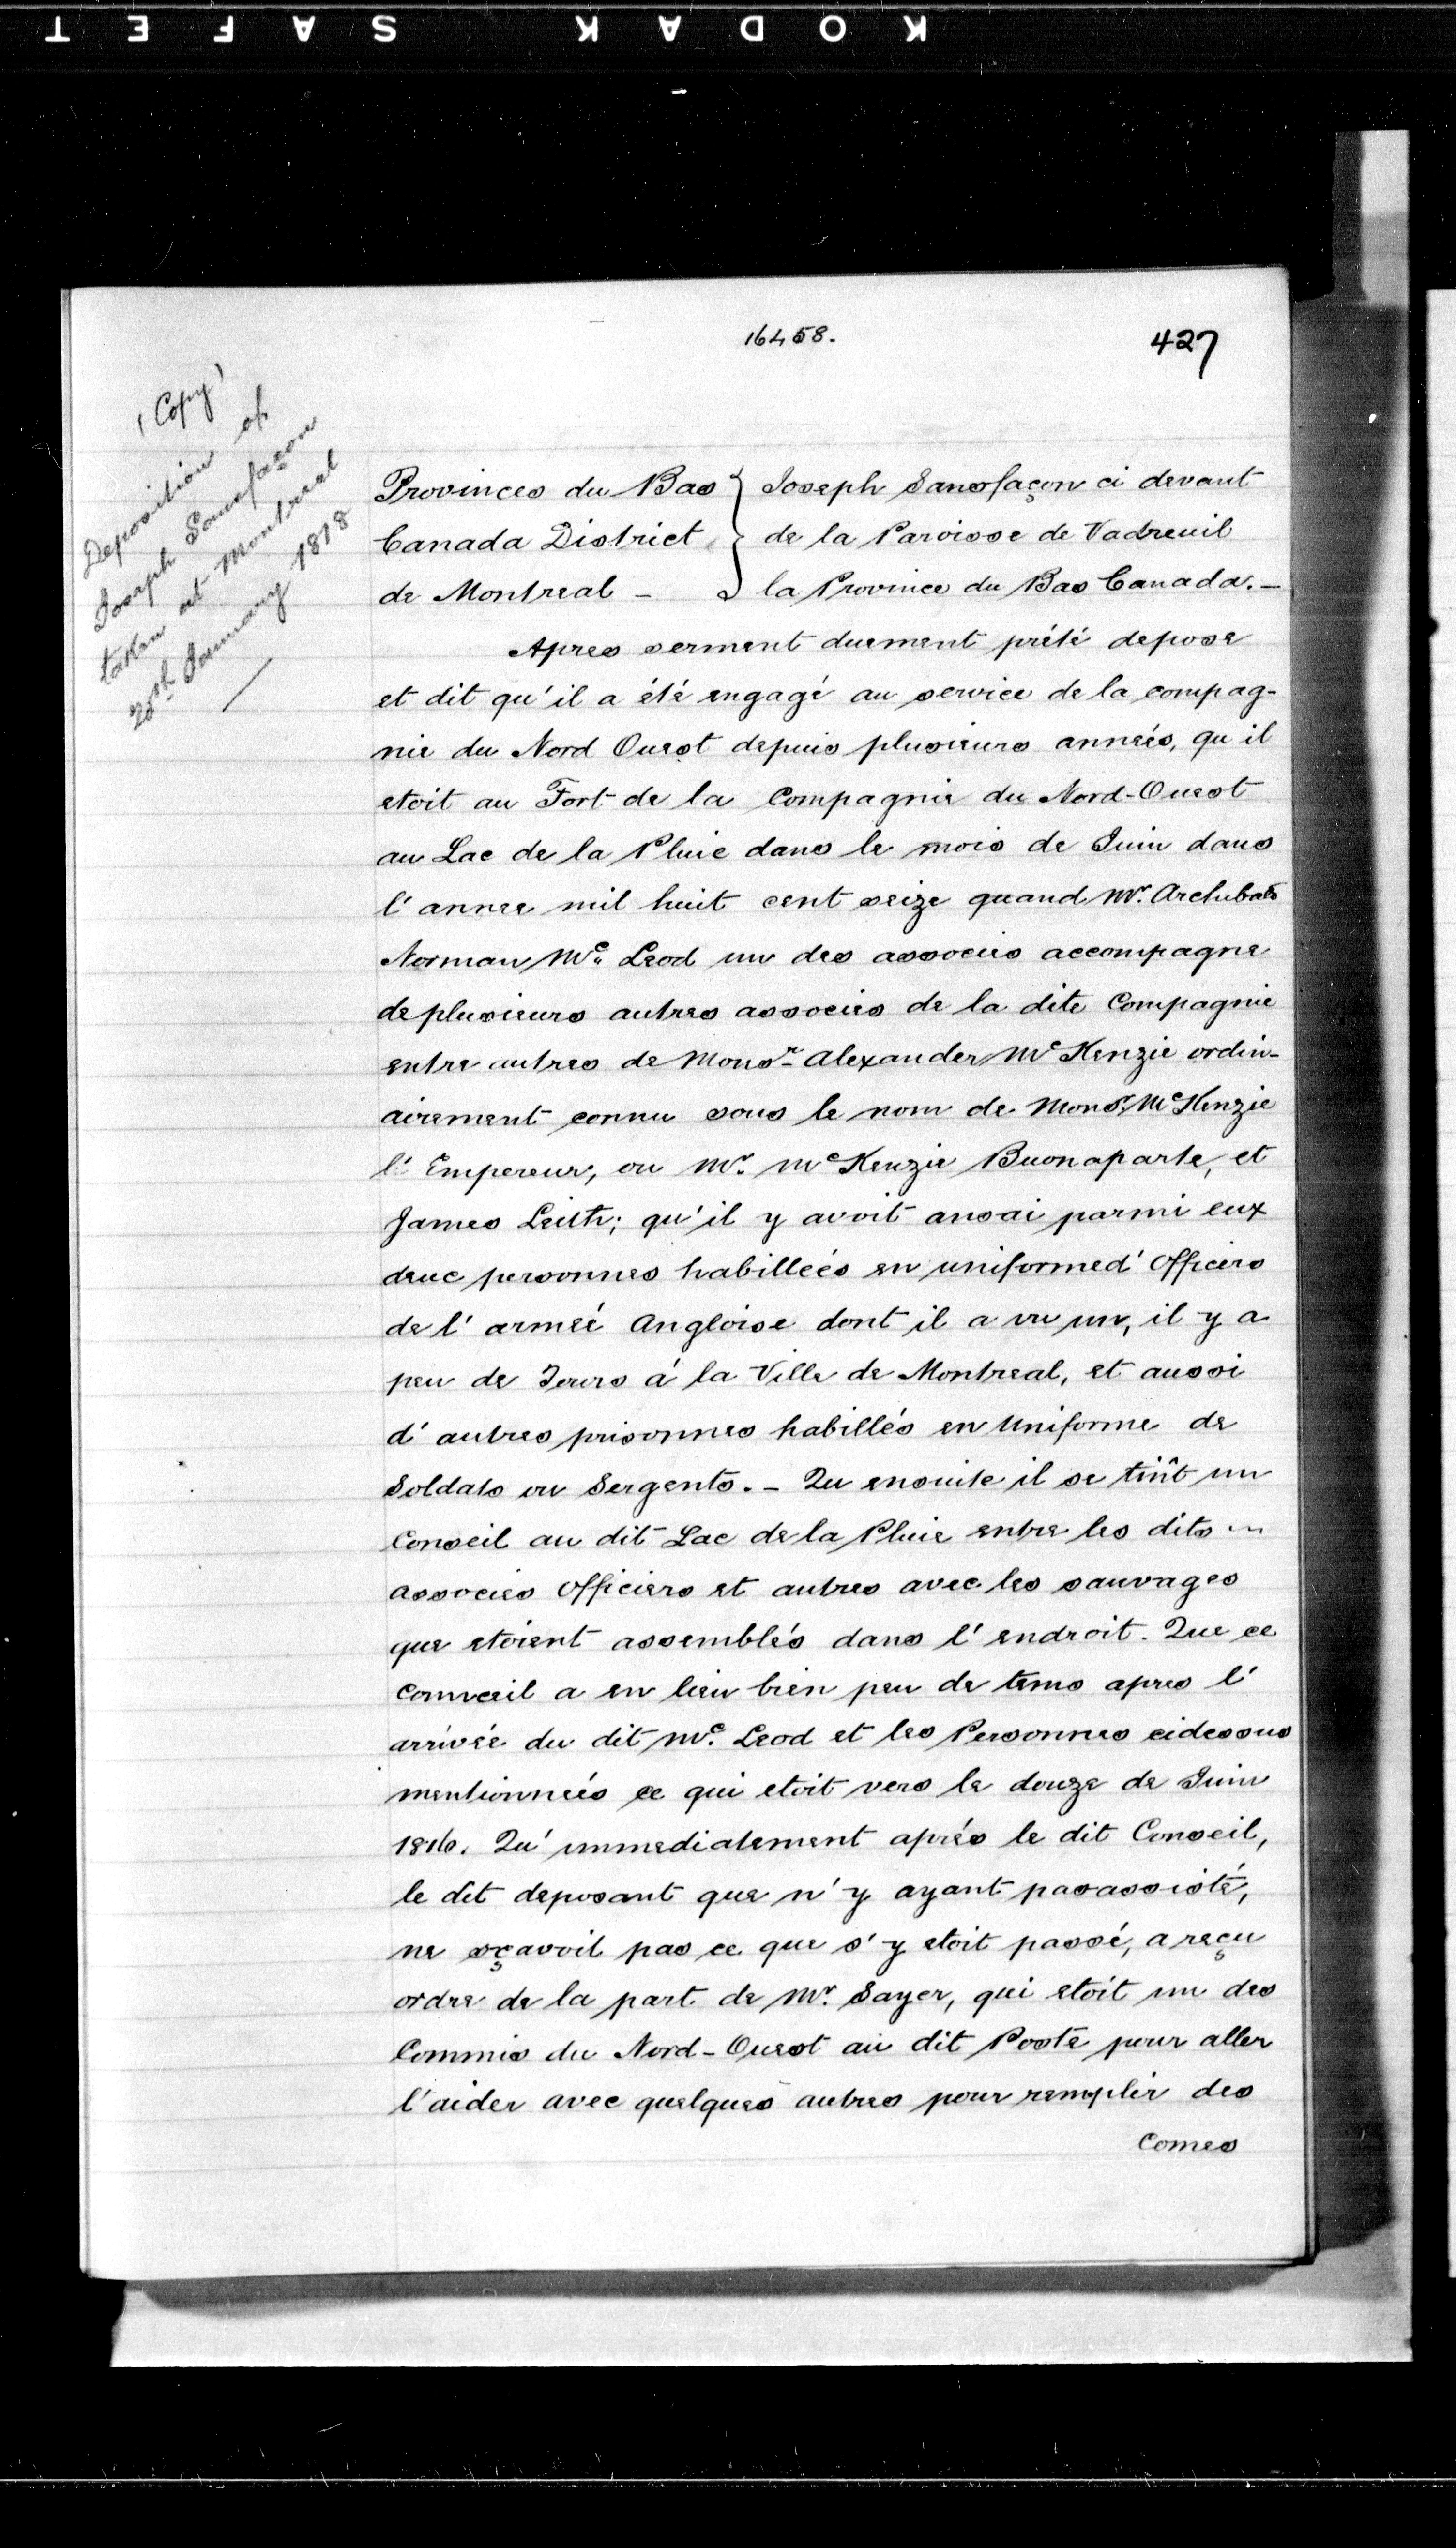 KODAK SAFET
16458.
427
(Copy)
Deposition of
Joseph Sansfaçon
taken at Montreal
20th January 1818
Provinces du Bas } Joseph Sansfaçon ci devant
Canada District } de la Paroisse de Vadreuil
de Montreal - } la Province du Bas Canada.-
Apres serment duement prété depose
et dit qu'il a été engagé au service de la compag-
nie du Nord Ouest depuis plusieurs anneés, qu'il
etoit au Fort de la Compagnie du Nord-Ouest
au Lac de la Pluie dans le mois de Juin dans
l'annee mil huit cent seize quand Mr. Archibald
Norman Mc. Leod un des associes accompagne
de plusieurs autres associes de la dite Compagnie
entre autres de Monsr- Alexander Mc Kenzie ordin-
airement connu sous le nom de Monsr. McKenzie
l'Empereur, ou Mr. McKenzie Buonaparte, et
James Leith; qu'il y avoit ansai parmi eux
deuc personnes habilleés en uniformed' Officiers
de l'armeé Angloise dont il a vu un, il y a
peu de Jours á la Ville de Montreal, et aussi
d'autres prisonnes habillés en Uniforme de
Soldats ou Sergents. - Qu ensuite il se tînt un
Conseil au dit Lac de la Pluie entre les dits
associes Officiers et autres avec les sauvages
que etoient assemblés dans l'endroit. Que ce
Comveil a en lieu bien peu de tems apres l'
arrivée du dit Mc. Leod et les Personnes cidessus
mentionneés ce qui etoit vers le douze de Juin
1816. Qu' immediatement aprés le dit Conseil,
le dit deposant que n'y ayant pasassisté,
ne sçavoit pas ce que s'y etoit passé, a reçu
ordre de la part de Mr. Sayer, qui etoit un des
Commis du Nord-Ouest au dit Poste pour aller
l'aider avec quelques autres pour remplir des
Comes